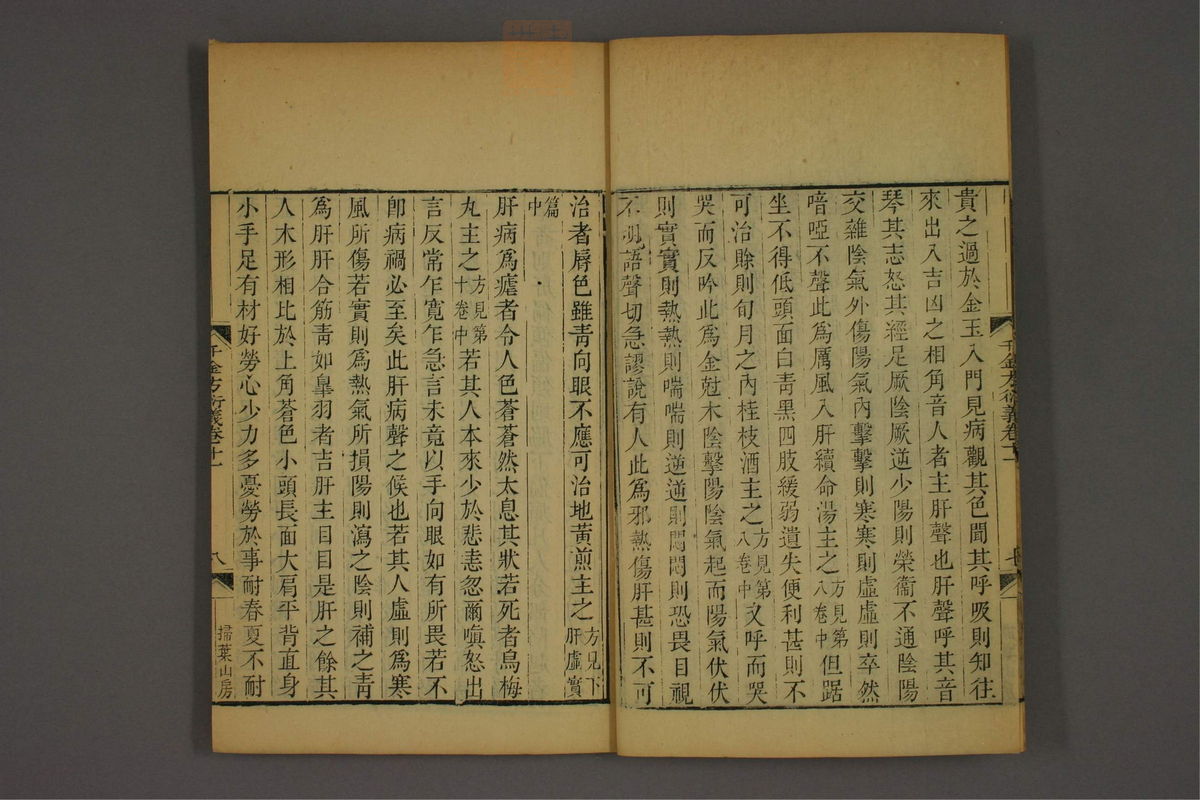 貴之過於金玉入門見病觀其色聞其呼吸則知往
來出入吉凶之相角音人者主肝聲也肝聲呼其音
琴其志怒其經足厥陰厥逆少陽則榮衞不通陰陽
交雜陰氣外傷陽氣內擊擊則寒寒則虛虛則卒然
喑啞不聲此爲厲風入肝續命湯主之方見第八卷中但踞
坐不得低頭面白靑黑四肢緩弱遺失便利甚則不
可治賖則旬月之內桂枝酒主之方見第八卷中又呼而哭
哭而反吟此爲金尅木陰擊陽陰氣起而陽氣伏伏
則實實則熱熱則喘喘則逆逆則悶悶則恐畏目視
不明語聲切急謬說有人此爲邪熱傷肝甚則不可
千金方衍義卷十一
七
治者脣色雖靑向眼不應可治地黃煎主之方見下肝虛實
篇中
肝病爲瘧者令人色蒼蒼然太息其狀若死者烏梅
丸主之方見第十卷中若其人本來少於悲恚忽爾嗔怒出
言反常乍寬乍急言未竟以手向眼如有所畏若不
卽病禍必至矣此肝病聲之候也若其人虛則爲寒
風所傷若實則爲熱氣所損陽則瀉之陰則補之靑
爲肝肝合筋靑如翠羽者吉肝主目目是肝之餘其
人木形相比於上角蒼色小頭長面大肩平背直身
小手足有材好勞心少力多憂勞於事耐春夏不耐
千金方衍義卷十一
八
掃葉山房